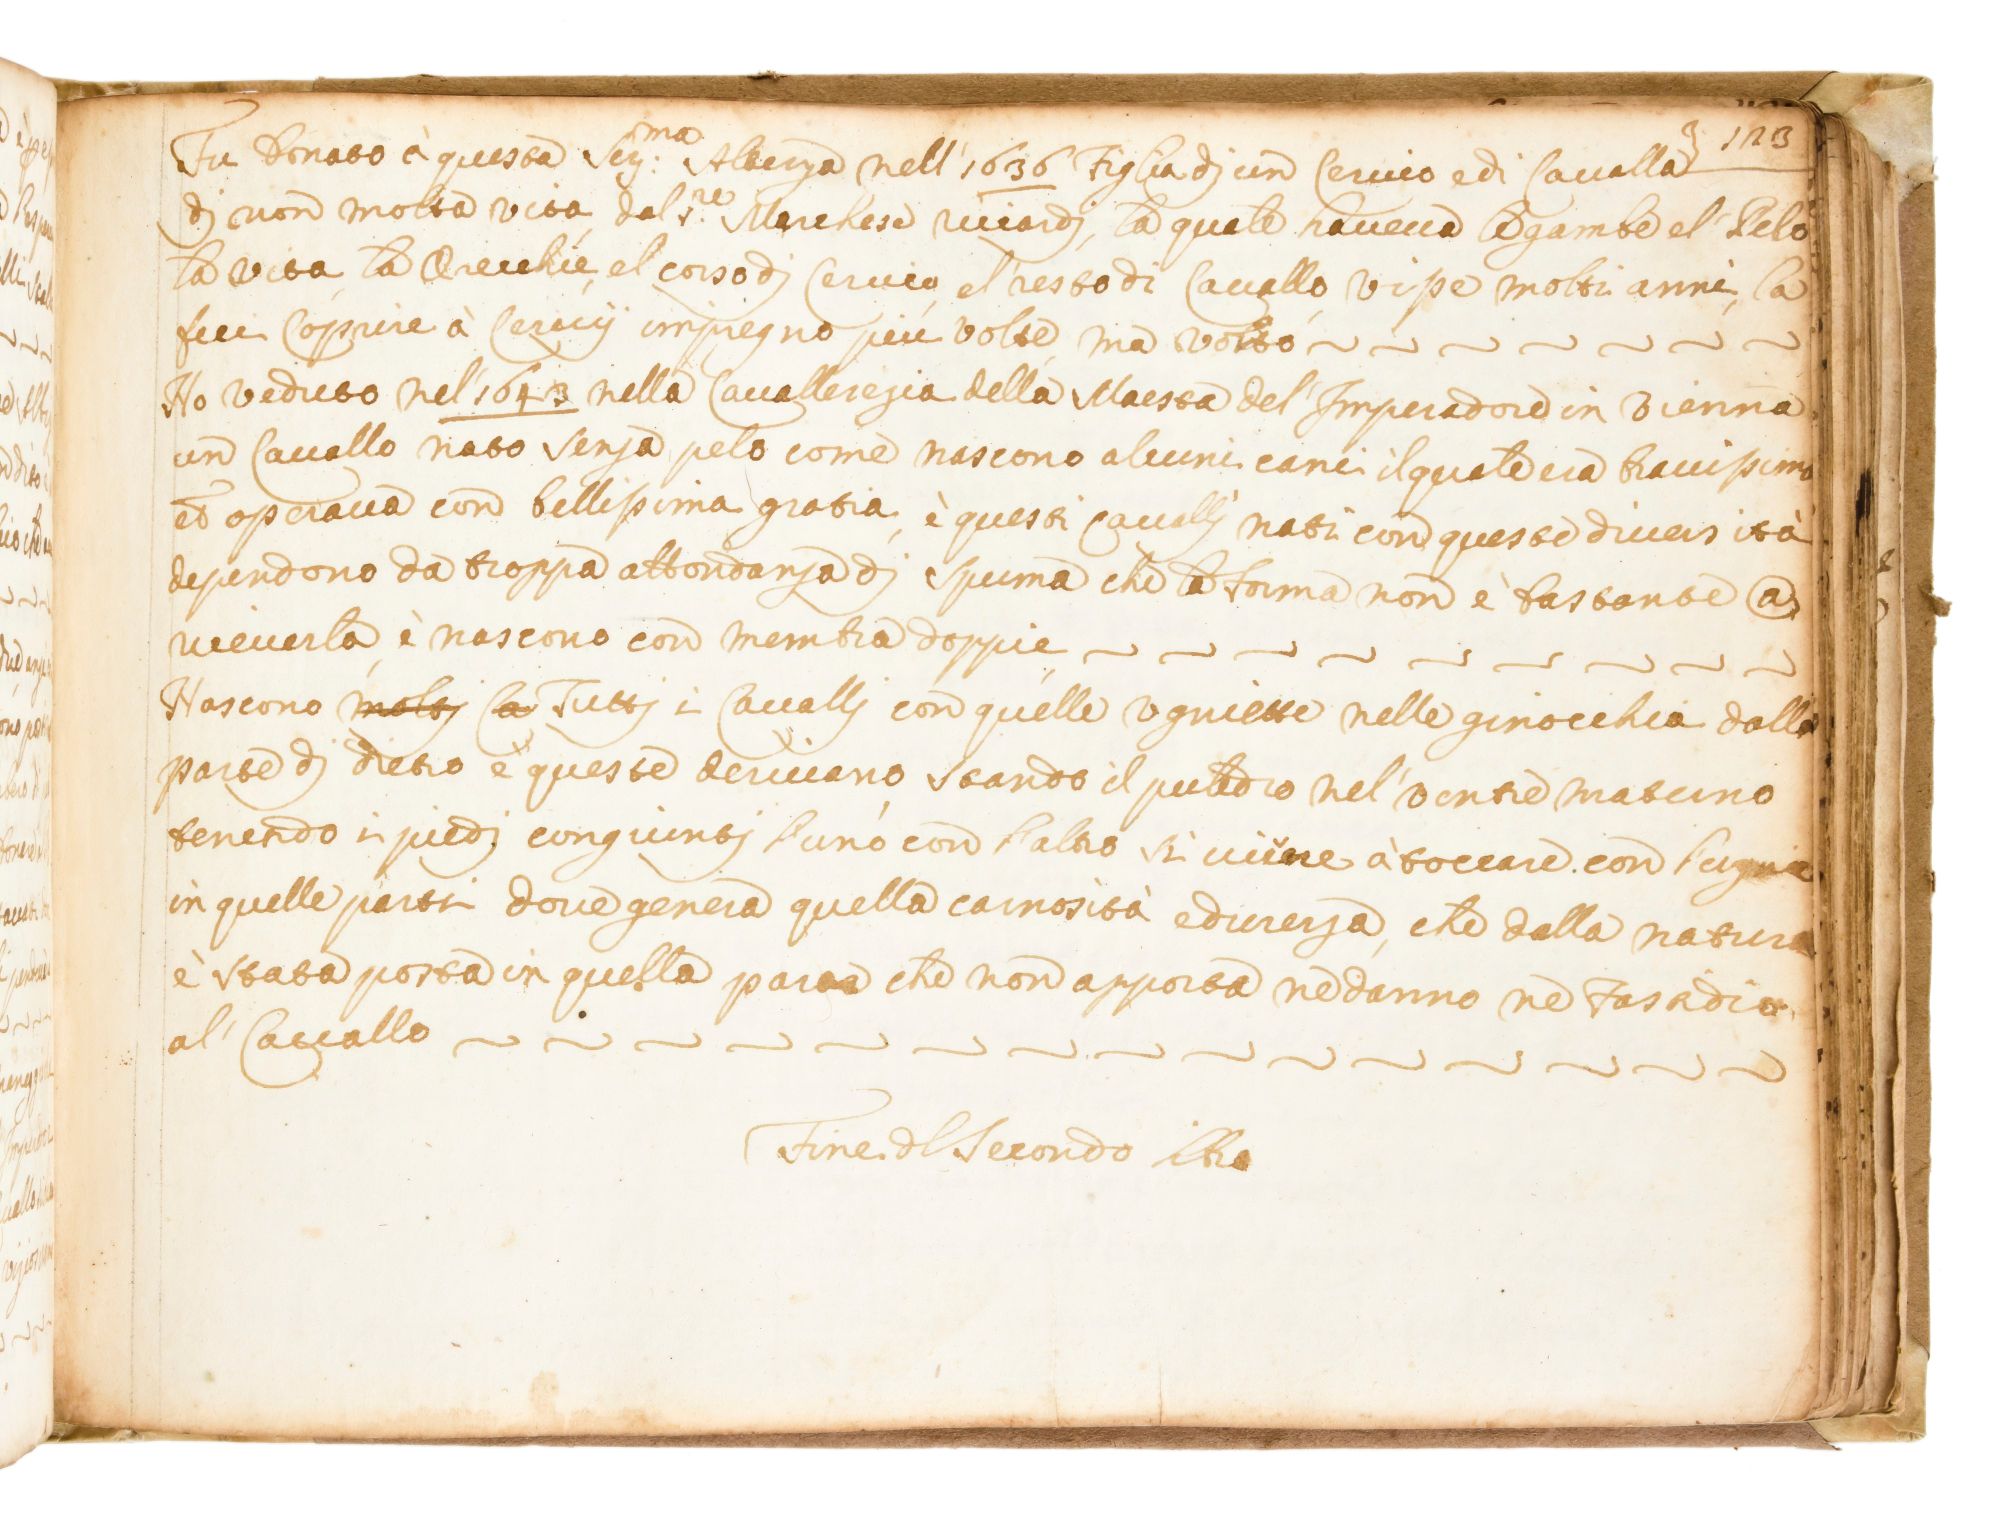 123
Fu donato à questa Ser:ma Alteza nell' 1636 Figlia dj un Ceruio e di Caualla
dj non molta vita, dal s.re Marchese ricciardj, la quale haueua le gambe el' Pelo
la vita, la Orecchie, el' corso dj Ceruio, el' resto di Cauallo, visse molti anni, la
feci Coprire à Ceruij impregno piu volte, ma
Ho veduto nel' 1643 nella Caualleregia della Maesta del' Imperadore in Vienna
un Cauallo nato senza pelo come nascono alcuni cani il quale era brauissimo
et operaua con bellissima gratia, è questi Caualli nati con queste diuersità
dependono da troppa abbondanza dj spuma che la forma non è bastante a
riceuerla, è nascono con membra doppie
Nascono moltj Ca Tuttj i Cauallj con quelle vgniette nelle ginocchia dalla
parte dj dietro è queste deriuano stando il puledro nel' ventre materno
tenendo i piedj congiuntj l'uno con l'altro si uiene à toccare con l'ugnie
in quelle parti doue genera quella carnosità e dureza, che dalla natura
è stata posta in quella parte che non apporta ne danno ne Fastidio
al' Cauallo
Fine dl Secondo libro